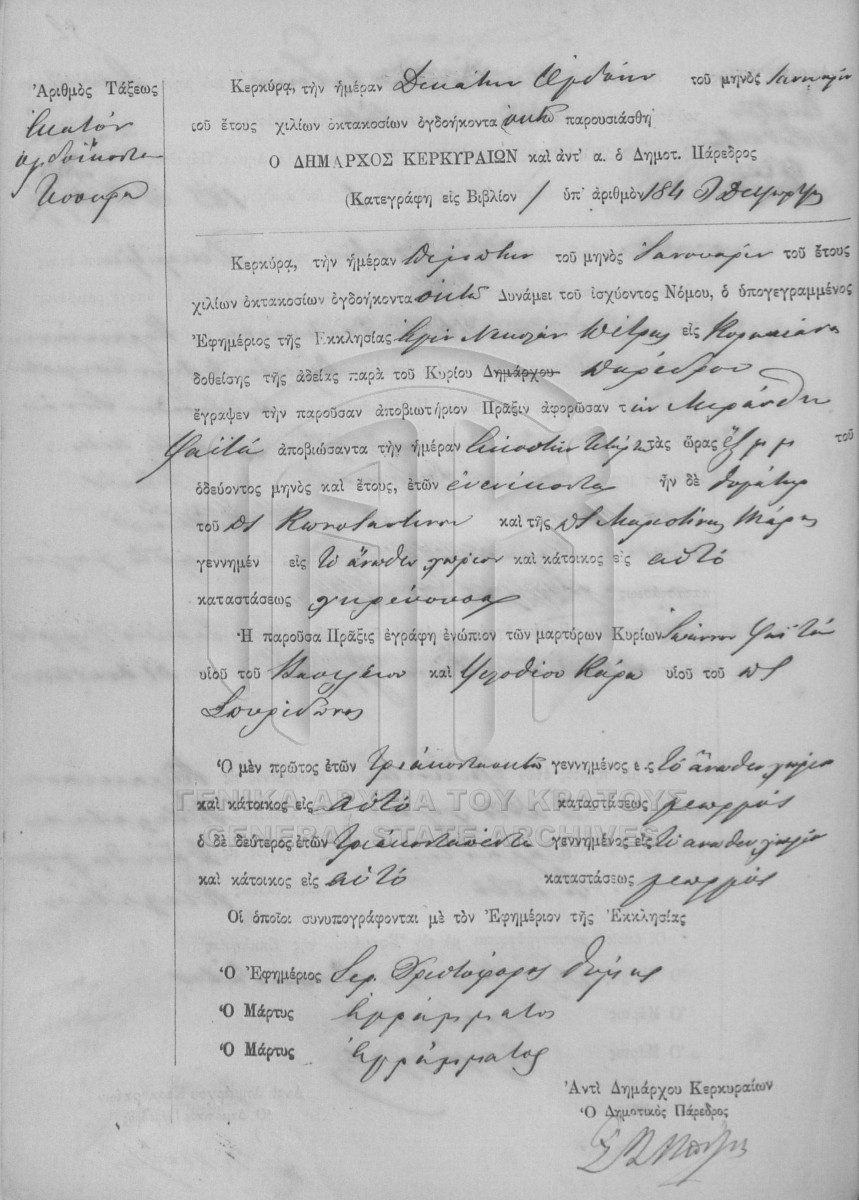 Ἀριθμὸς Τάξεως
Ἑκατὸν
ὀγδοήκοντα
τέσσαρα
Κερκύρα, τὴν ἡμέραν Δεκάτην Ὀγδόην τοῦ μηνὸς Ἰανουαρίου
τοῦ ἔτους χιλίων ὀκτακοσίων ὀγδοήκοντα ὀκτὼ παρουσιάσθη
Ο ΔΗΜΑΡΧΟΣ ΚΕΡΚΥΡΑΙΩΝ καὶ ἀντ' α. ὁ Δημοτ. Πάρεδρος
(Κατεγράφη εἰς Βιβλίον 1 ὑπ' ἀριθμὸν 184
Κερκύρα, τὴν ἡμέραν Πέμπτην τοῦ μηνὸς Ἰανουαρίου τοῦ ἔτους
χιλίων ὀκτακοσίων ὀγδοήκοντα ὀκτὼ Δυνάμει τοῦ ἰσχύοντος Νόμου, ὁ ὑπογεγραμμένος
Ἐφημέριος τῆς Ἐκκλησίας Ἁγίου Νικολάου Πέτρας εἰς Κορακιάνα
δοθείσης τῆς ἀδείας παρὰ τοῦ Κυρίου Δημάρχου Παρέδρου
ἔγραψεν τὴν παροῦσαν ἀποβιωτήριον Πρᾶξιν ἀφορῶσαν τὴν
Φαϊτᾶ ἀποβιώσαντα τὴν ἡμέραν Εἰκοστὴν τετάρτην τὰς ὥρας ἓξ μ μ τοῦ
ὁδεύοντος μηνὸς καὶ ἔτους, ἐτῶν ἐνενήκοντα ἦν δὲ θυγάτηρ
τοῦ Κωνσταντίνου καὶ τῆς
γεννημέν εἰς τὸ ἄνωθεν χωρίον καὶ κάτοικος εἰς αὐτό
καταστάσεως χηρεύουσα
Ἡ παροῦσα Πρᾶξις ἐγράφη ἐνώπιον τῶν μαρτύρων Κυρίων Ἰωάννου Φαϊτᾶ
υἱοῦ τοῦ Βασιλείου καὶ Φιλοθέου Κάρα υἱοῦ τοῦ
Σπυρίδωνος
Ὁ μὲν πρῶτος ἐτῶν τριακονταοκτὼ γεννημένος εἰς τὸ ἄνωθεν χωρίον
καὶ κάτοικος εἰς αὐτό καταστάσεως γεωργός
ὁ δὲ δεύτερος ἐτῶν τριακονταπέντε γεννημένος εἰς τὸ ἄνωθεν χωρίον
καὶ κάτοικος εἰς αὐτό καταστάσεως γεωργός
Οἱ ὁποῖοι συνυπογράφονται μὲ τὸν Ἐφημέριον τῆς Ἐκκλησίας
Ὁ Ἐφημέριος Ἱερ. Χριστόφορος
Ὁ Μάρτυς ἀγράμματος
Ὁ Μάρτυς ἀγράμματος
Ἀντὶ Δημάρχου Κερκυραίων
Ὁ Δημοτικὸς Πάρεδρος
ΓΕΝΙΚΑ ΑΡΧΕΙΑ ΤΟΥ ΚΡΑΤΟΥΣ
GENERAL STATE ARCHIVES